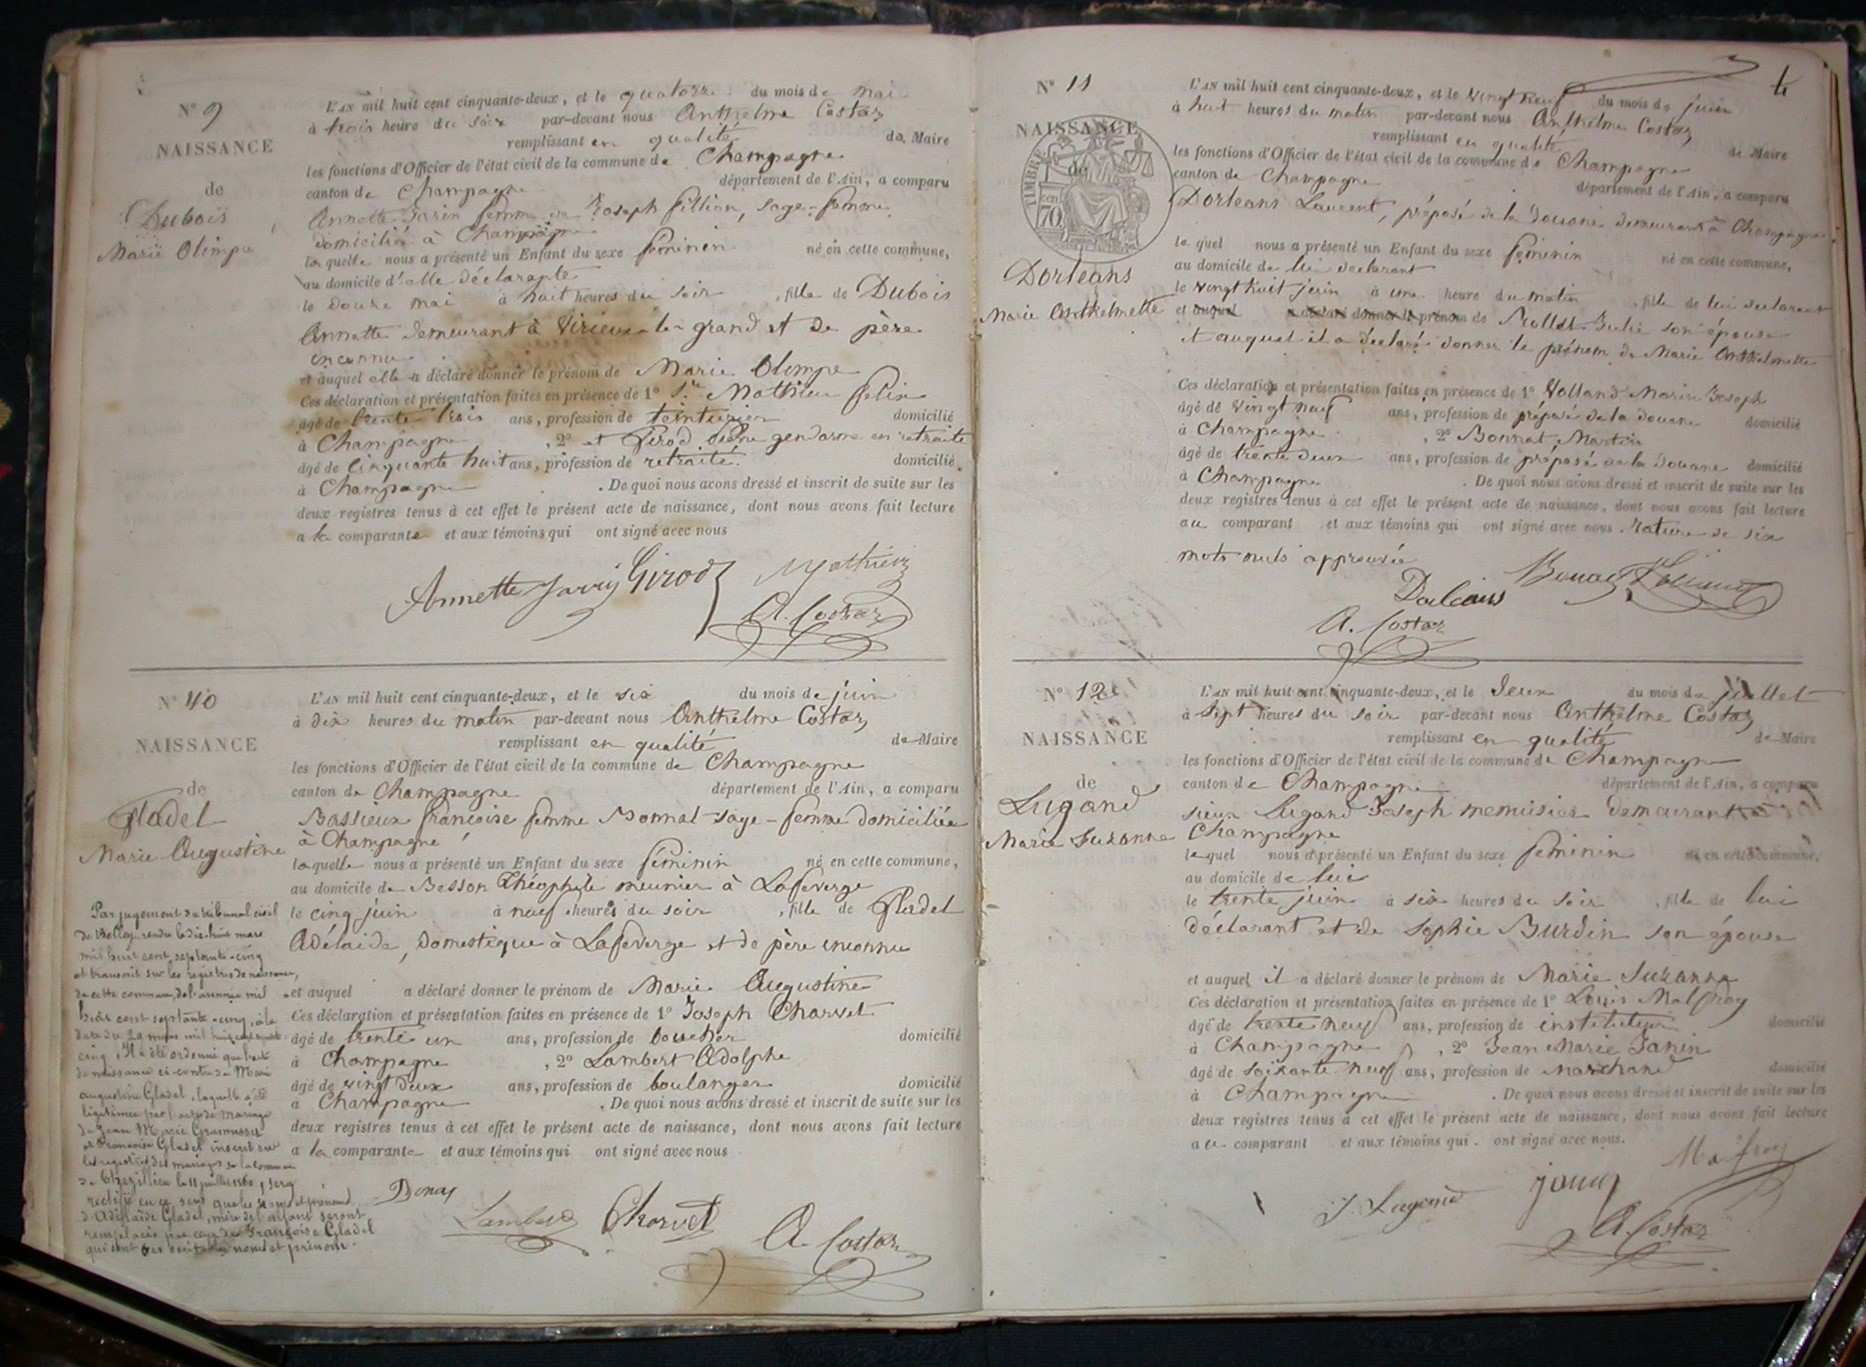 N° 9
NAISSANCE
de
Dubois
Marie Olimpe
L'AN mil huit cent cinquante-deux, et le quatorze du mois de mai
à trois heure du soir par-devant nous Anthelme Costaz
remplissant en qualité de Maire
les fonctions d'Officier de l'état civil de la commune de Champagne
canton de Champagne département de l'Ain, a comparu
Annette Jarin femme de Joseph fillion, sage-femme
domiciliée à Champagne
laquelle nous a présenté un Enfant du sexe féminin né en cette commune,
au domicile d'elle déclarante
le douze mai à huit heures du soir, fille de Dubois
Annette demeurant à Virieux-le-grand et de père
inconnu
et auquel elle a déclaré donner le prénom de Marie Olimpe
Ces déclaration et présentation faites en présence de 1° Sr Mathieu felix
âgé de trente trois ans, profession de teinturier domicilié
à Champagne, 2° et Girod gendarme en retraite
âgé de Cinquante huit ans, profession de retraité. domicilié
à Champagne. De quoi nous avons dressé et inscrit de suite sur les
deux registres tenus à cet effet le présent acte de naissance, dont nous avons fait lecture
a la comparante et aux témoins qui ont signé avec nous
Annette Jarin Girod Mathieu
A. Costaz
N° 10
NAISSANCE
de
Gladel
Marie Augustine
Par jugement du tribunal civil
de Belley rendu le dix-huit mars
mil huit cent septante-cinq
et transcrit sur les registres de naissance
de cette commune de l'année mil
huit cent septante-cinq, à la
date du 22 mars mil huit cent septante
cinq, Il a été ordonné que l'acte
de naissance ci-contre de Marie
augustine Gladel, laquelle a été
légitimée par l'acte de mariage
de Jean Marie
et Françoise Gladel inscrit sur
les registres des mariages de la commune
de le 11 juillet 1860, sera
rectifié en ce sens que les noms et prénoms
d'Adélaïde Gladel, mère de l'enfant seront
remplacés par ceux de Françoise Gladel
qui sont ses véritables noms et prénom.
L'AN mil huit cent cinquante-deux, et le six du mois de juin
à dix heures du matin par-devant nous Anthelme Costaz
remplissant en qualité de Maire
les fonctions d'Officier de l'état civil de la commune de Champagne
canton de Champagne département de l'Ain, a comparu
Bassieux françoise femme Bonnat sage-femme domiciliée
à Champagne
laquelle nous a présenté un Enfant du sexe féminin né en cette commune,
au domicile de Besson Théophile meunier à Laseverge
le cinq juin à neuf heures du soir, fille de Gladel
Adélaïde, domestique à Laseverge et de père inconnu
et auquel a déclaré donner le prénom de Marie Augustine
Ces déclaration et présentation faites en présence de 1° Joseph Charvet
âgé de trente un ans, profession de boucher domicilié
à Champagne, 2° Lambert Adolphe
âgé de vingt deux ans, profession de boulanger domicilié
à Champagne. De quoi nous avons dressé et inscrit de suite sur les
deux registres tenus à cet effet le présent acte de naissance, dont nous avons fait lecture
a la comparante et aux témoins qui ont signé avec nous
Lambert Charvet A. Costaz
N° 11
NAISSANCE
de
TIMBRE
70
Dorleans
Marie Anthelmette
L'AN mil huit cent cinquante-deux, et le vingt neuf du mois de juin
à huit heures du matin par-devant nous Anthelme Costaz
remplissant en qualité de Maire
les fonctions d'Officier de l'état civil de la commune de Champagne
canton de Champagne département de l'Ain, a comparu
Dorleans Laurent, préposé de la douane demeurant à Champagne
lequel nous a présenté un Enfant du sexe féminin né en cette commune,
au domicile de lui déclarant
le vingt huit juin à une heure du matin, fille de lui déclarant
et auquel a déclaré donner le prénom de Mollet Julie son épouse
et auquel il a déclaré donner le prénom de Marie Anthelmette
Ces déclaration et présentation faites en présence de 1° Volland Marie Joseph
âgé de vingt neuf ans, profession de préposé de la douane domicilié
à Champagne, 2° Bonnat Martin
âgé de trente deux ans, profession de préposé de la douane domicilié
à Champagne. De quoi nous avons dressé et inscrit de suite sur les
deux registres tenus à cet effet le présent acte de naissance, dont nous avons fait lecture
au comparant et aux témoins qui ont signé avec nous Rature de six
mots nuls approuvée
Dorleans
A. Costaz
N° 12
NAISSANCE
de
Lugand
Marie Suzanne
L'AN mil huit cent cinquante-deux, et le deux du mois de juillet
à sept heures du soir par-devant nous Anthelme Costaz
remplissant en qualité de Maire
les fonctions d'Officier de l'état civil de la commune de Champagne
canton de Champagne département de l'Ain, a comparu
sieur Lugand Joseph menuisier demeurant à
Champagne
lequel nous a présenté un Enfant du sexe féminin né en cette commune,
au domicile de lui
le trente juin à six heures du soir, fille de lui
déclarant et de Sophie Burdin son épouse
et auquel il a déclaré donner le prénom de Marie Suzanne
Ces déclaration et présentation faites en présence de 1° Louis Malfroy
âgé de trente neuf ans, profession de instituteur domicilié
à Champagne, 2° Jean Marie Janin
âgé de soixante-neuf ans, profession de Marchand domicilié
à Champagne. De quoi nous avons dressé et inscrit de suite sur les
deux registres tenus à cet effet le présent acte de naissance, dont nous avons fait lecture
au comparant et aux témoins qui ont signé avec nous.
Malfroy
J. Lugand Janin
A. Costaz